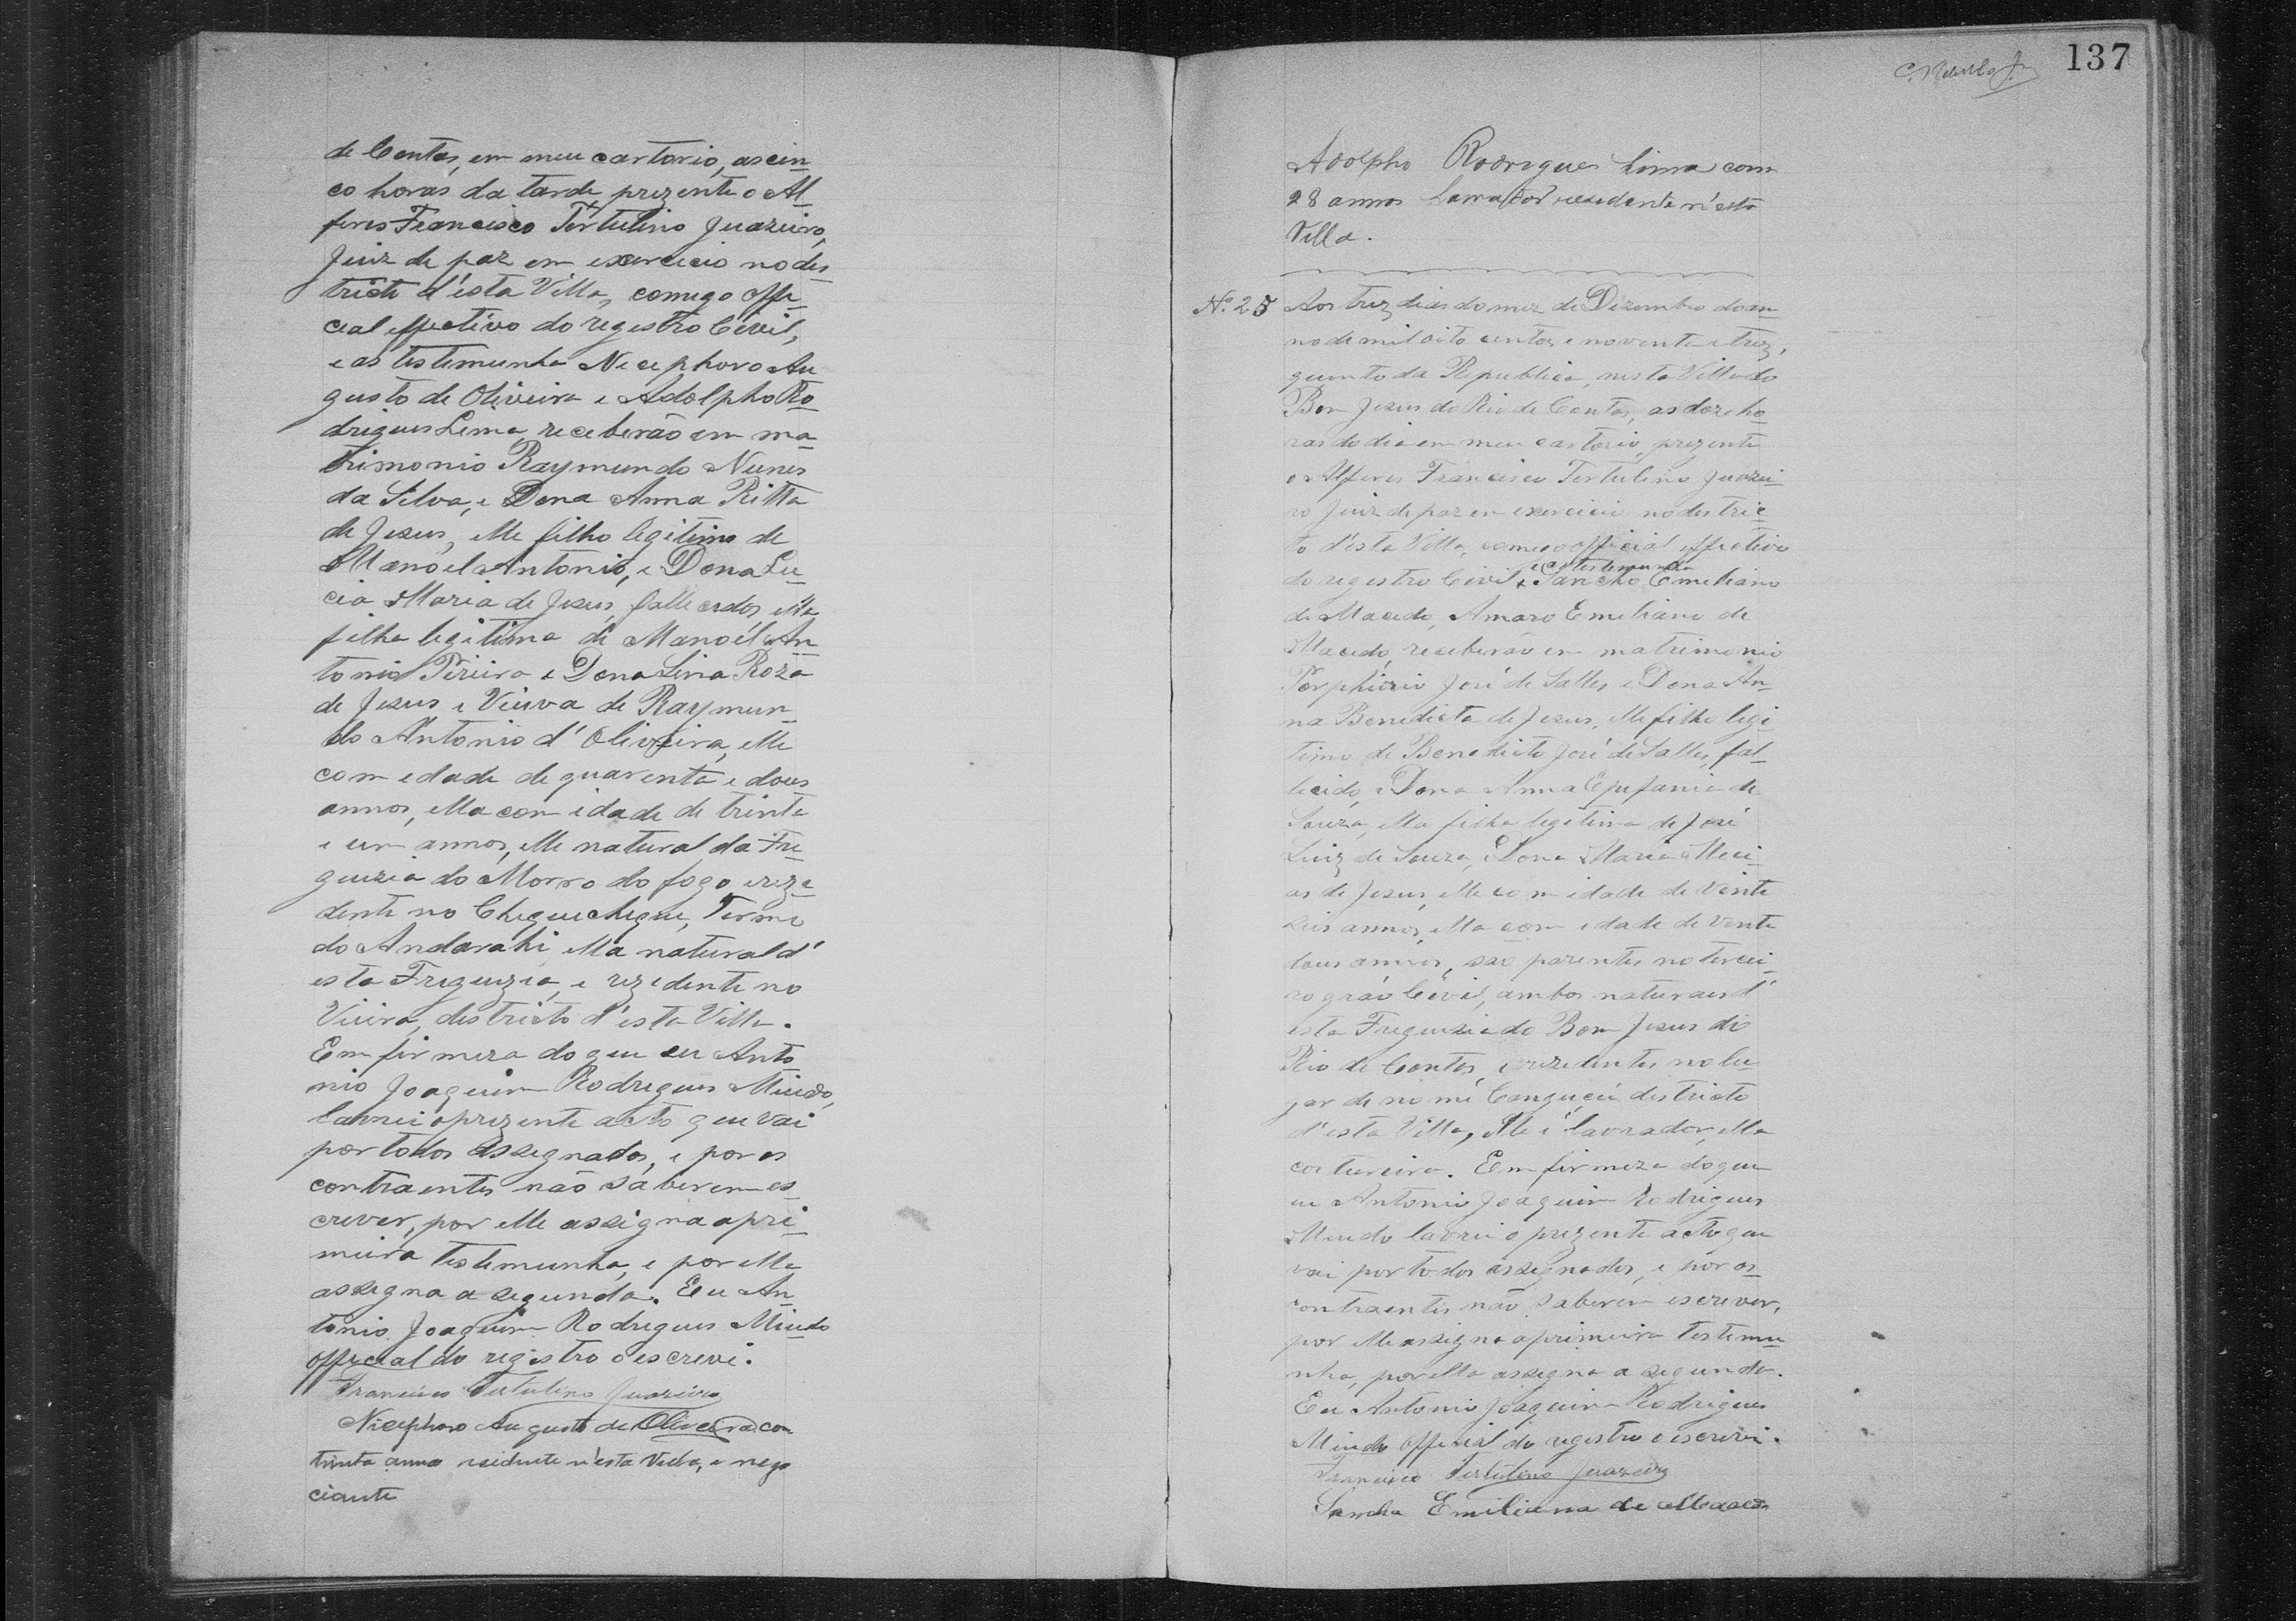 de Contas, em meu cartorio, as cin-
co horas da tarde prezente o Al-
feres Francisco Tertulino Juazeiro,
Juiz de paz em exercicio no des-
tricto d'esta Villa, comigo offi-
cial effectivo do registro Civil,
e as testemunha Nicephoro Au
gusto de Oliveira e Adolpho Ro-
drigues Lima, receberão em ma-
trimonio Raymundo Nunes
da Silva, e Dona Anna Ritta
de Jesus, elle filho legitimo de
Manoel Antonio, e Dona Lu-
cia Maria de Jesus, fallecidos, ella
filha legitima de Manoel An-
tonio Pereira e Dona Liria Roza
de Jesus e Viuva de Raymun-
do Antonio d'Oliveira, elle
com edade de quarenta e dous
annos, ella com idade de trinta
e um annos, elle natural da Fre-
guezia do Morro do fogo e reze
dente no Chequechegue, Termo
do Andarahi, ella natural d'
esta Freguezia, e rezidente no
Vieira, destricto d'esta Villa.
Em firmeza do que eu Anto
nio Joaquim Rodrigues Miudo,
lavrei o prezente acto que vai
por todos assegnados, e por os
contraentes não saberem es-
crever, por elle assigna a pri-
meira testemunha, e por ella
assegna a segunda. Eu An-
tonio Joaquim Rodrigues Miudo
official do registro o escrevi.
Francisco Tertulino Juazeiro
Nicephoro Augusto de Oliveira com
trinta annos residente n'esta Villa, e nego
ciante
137
Adolpho Rodrigues Lima com
28 annos Lavrador residente n'esta
Villa.
Nº. 25 Aos trez dias do mez de Dezembro do an-
no de mil oito centos e noventa e trez,
quinto da Republica, nesta Villa do
Bom Jezus do Rio de Contas, as doze ho-
ras do dia em meu cartorio, prezente
o Alferes Francisco Tertulino Juazei-
ro Juiz de paz em exercicio no destric-
to d'esta Villa, comigo official effectivo
e as testemunha
do registro Civil x Sancho Emeliano
de Macedo, Amaro Emeliano de
Macedo, receberão em matrimonio
Porphirio José de Salles, e Dona An-
na Benedicta de Jesus, elle filho legi-
timo de Benedicto José de Salles, fal-
lecido, e Dona Anna Epefania de
Souza, ella filha legitima de José
Luiz de Souza, e Dona Maria
as de Jesus, elle com idade de vinte
seis annos, ella com edade de vente
dous annos, são parentes no tercei-
ro gráo Civil, ambos naturaes d'
esta Freguezia do Bom Jezus do
Rio de Contas, e rezedentes no lu-
gar de nome destricto
d'esta Villa, elle é lavrador, ella
costureira. Em firmeza do que
eu Antonio Joaquim Rodrigues
Miudo lavrei o prezente acto que
vai por todos assegnados, e por os-
contraentes não saberem escrever,
por elle assigna a primeira testemu-
nha, por ella assegna a segunda.
Eu Antonio Joaquim Rodrigues
Miudo official do registro o escrevi.
Francisco Tertulino Juazeiro
Sancho Emiliano de Macedo